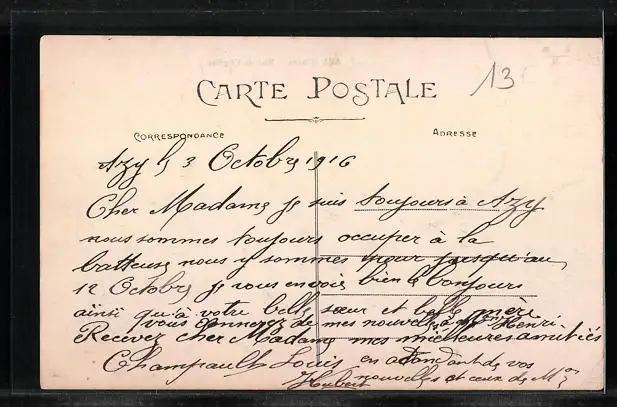 CARTE POSTALE
13
CORRESPONDANCE
ADRESSE
Azy le 3 Octobre 1916
Cher Madame je suis toujours à Azy
nous sommes toujours occuper à la
batteuse nous y sommes pour jusqu'au
12 Octobre je vous envoie bien le bonjours
ainsi qu'à votre belle sœur et belle mère
vous donnerez de mes nouvelles à Henri.
Recevez cher Madame mes meilleures amitiés
Champault Louis en attendant de vos
Hubert nouvelles et ceux de Mr